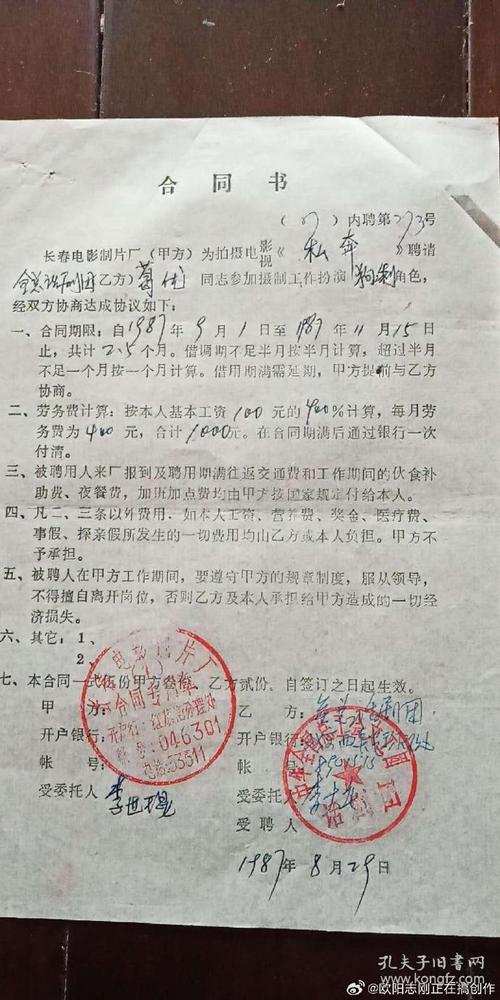 合同书
(87)内聘第273号
长春电影制片厂(甲方)为拍摄电影视《私奔》聘请
全总话剧团乙方)葛优同志参加摄制工作扮演角色,
经双方协商达成协议如下:
一、合同期限:自1987年9月1日至1987年11月15日
止,共计2.5个月。借调期不足半月按半月计算,超过半月
不足一个月按一个月计算。借用期满需延期,甲方提前与乙方
协商。
二、劳务费计算:按本人基本工资100元的400%计算,每月劳
务费为400元,合计1000元。在合同期满后通过银行一次
付清。
三、被聘用人来厂报到及聘用期满往返交通费和工作期间的伙食补
助费、夜餐费,加班加点费均由甲方按国家规定付给本人。
四、凡二、三条以外费用,如本人工资、营养费、奖金、医疗费、
事假、探亲假所发生的一切费用均由乙方或本人负担。甲方不
予承担。
五、被聘人在甲方工作期间,要遵守甲方的规章制度,服从领导,
不得擅自离开岗位,否则乙方及本人承担给甲方造成的一切经
济损失。
六、其它:1、
2、
七、本合同一式伍份甲方叁份,乙方贰份,自签订之日起生效。
甲方:
开户银行:
帐号:
受委托人:李世
长春电影制片厂
合同专用章
开户行:红旗街分理处
帐号:046301
电话:53311
乙方:全总话剧团
开户银行:
帐号:
受委托人:李
受聘人
话剧团
1987年8月29日
孔夫子旧书网
@欧阳志刚正在搞创作